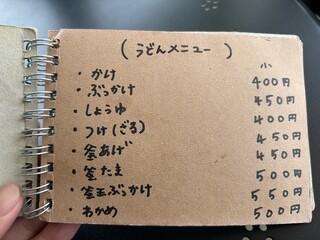 (うどんメニュー)
小
・かけ 400円
・ぶっかけ 450円
・しょうゆ 400円
・つけ(ざる) 450円
・釜あげ 450円
・釜たま 500円
・釜玉ぶっかけ 550円
・わかめ 500円